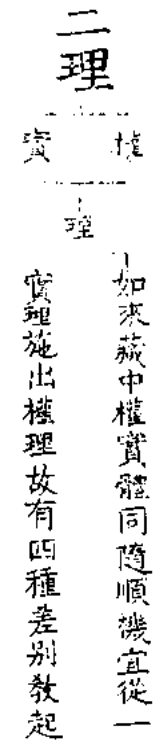 二理
權
實
理
如來藏中權實體同隨順機宜從一
實理施出權理故有四種差別教起